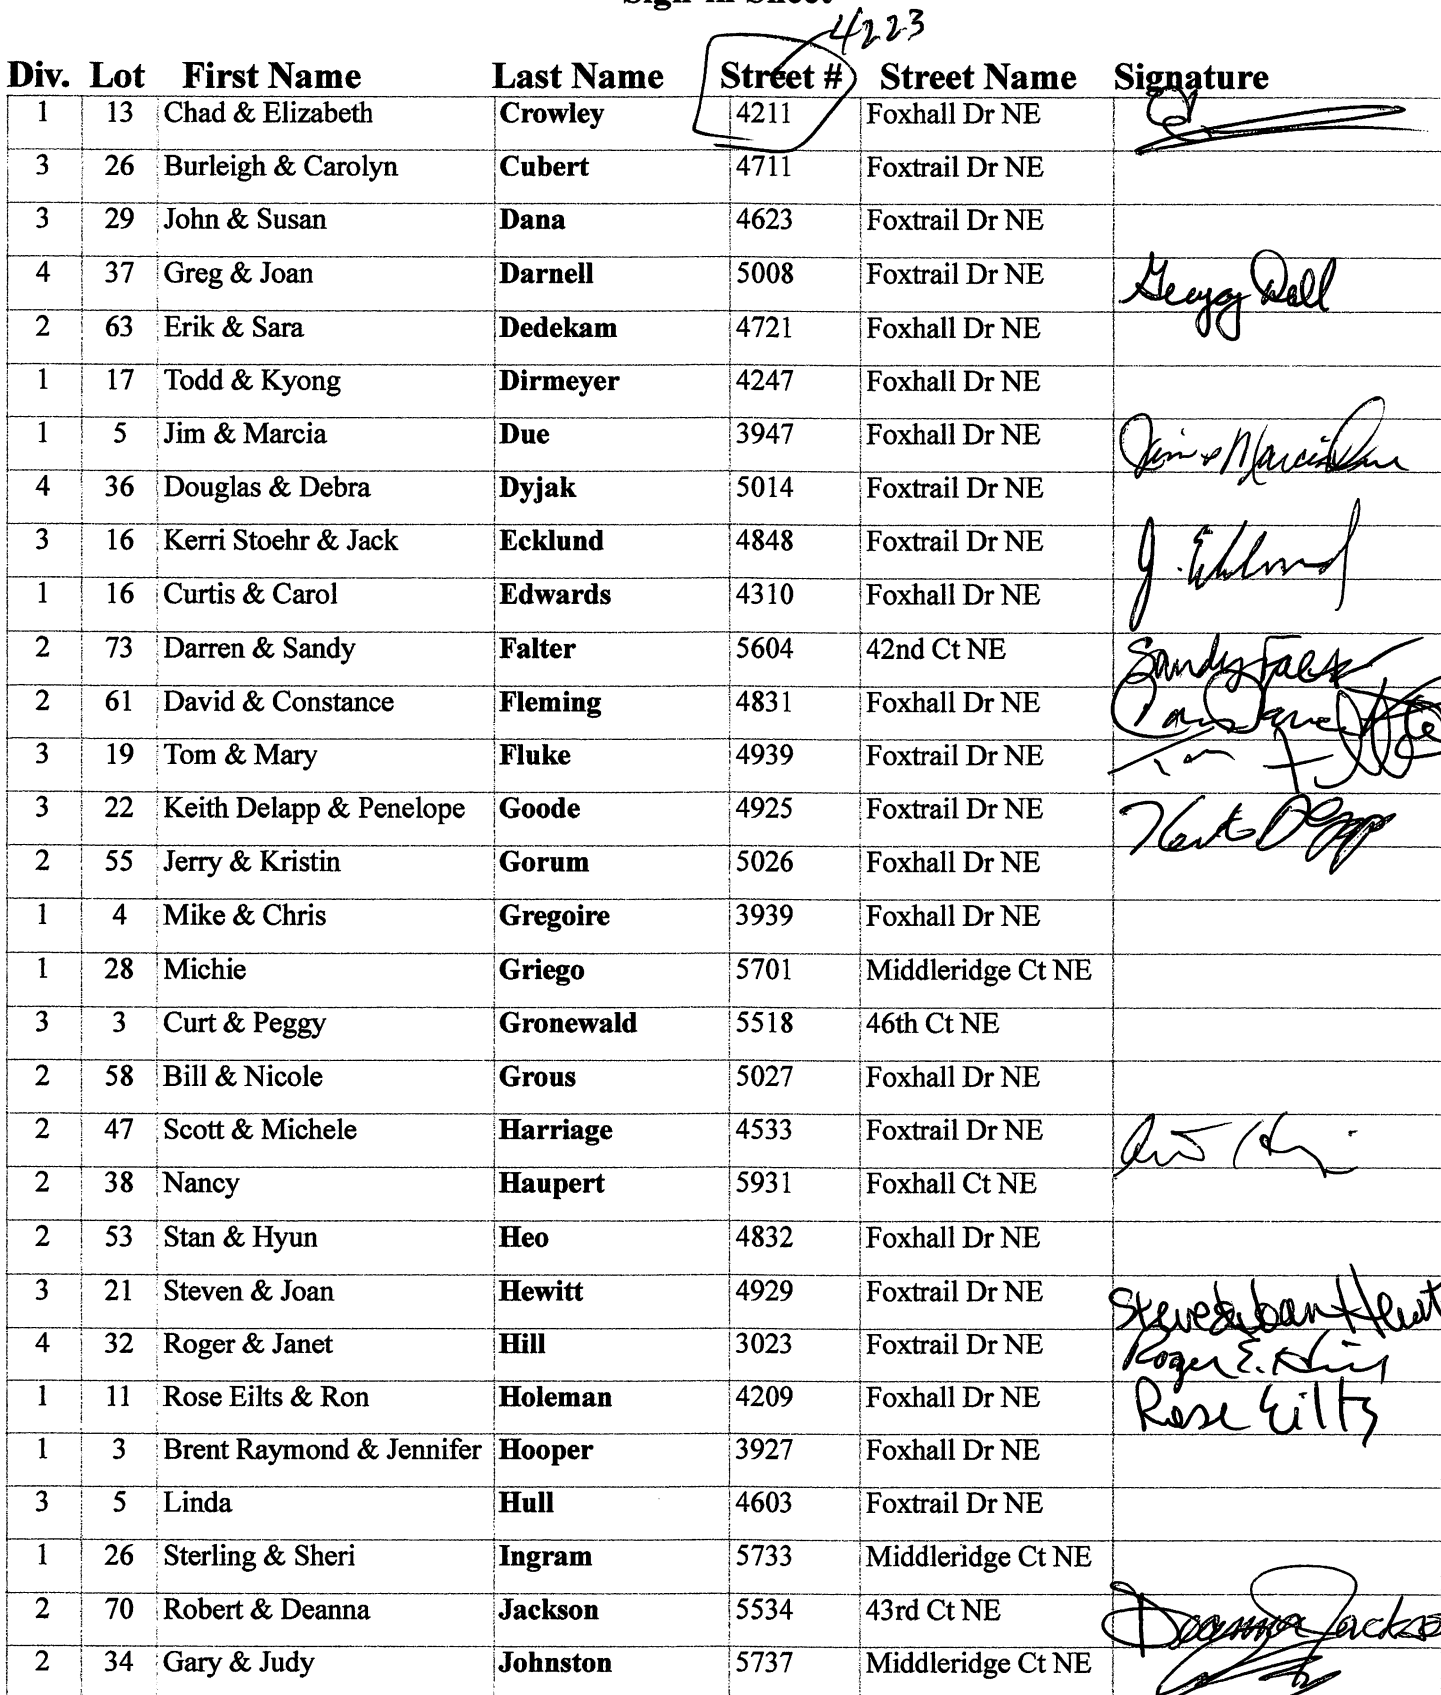 Sign-in Sheet
4223
Div. Lot First Name Last Name Street # Street Name Signature
1 13 Chad & Elizabeth Crowley 4211 Foxhall Dr NE
3 26 Burleigh & Carolyn Cubert 4711 Foxtrail Dr NE
3 29 John & Susan Dana 4623 Foxtrail Dr NE
4 37 Greg & Joan Darnell 5008 Foxtrail Dr NE
2 63 Erik & Sara Dedekam 4721 Foxhall Dr NE
1 17 Todd & Kyong Dirmeyer 4247 Foxhall Dr NE
1 5 Jim & Marcia Due 3947 Foxhall Dr NE Jim & Marcia Due
4 36 Douglas & Debra Dyjak 5014 Foxtrail Dr NE
3 16 Kerri Stoehr & Jack Ecklund 4848 Foxtrail Dr NE J. Ecklund
1 16 Curtis & Carol Edwards 4310 Foxhall Dr NE
2 73 Darren & Sandy Falter 5604 42nd Ct NE Sandy Falter
2 61 David & Constance Fleming 4831 Foxhall Dr NE
3 19 Tom & Mary Fluke 4939 Foxtrail Dr NE Tom
3 22 Keith Delapp & Penelope Goode 4925 Foxtrail Dr NE Keith Delapp
2 55 Jerry & Kristin Gorum 5026 Foxhall Dr NE
1 4 Mike & Chris Gregoire 3939 Foxhall Dr NE
1 28 Michie Griego 5701 Middleridge Ct NE
3 3 Curt & Peggy Gronewald 5518 46th Ct NE
2 58 Bill & Nicole Grous 5027 Foxhall Dr NE
2 47 Scott & Michele Harriage 4533 Foxtrail Dr NE
2 38 Nancy Haupert 5931 Foxhall Ct NE
2 53 Stan & Hyun Heo 4832 Foxhall Dr NE
3 21 Steven & Joan Hewitt 4929 Foxtrail Dr NE Steve & Joan Hewitt
4 32 Roger & Janet Hill 3023 Foxtrail Dr NE Roger E. Hill
1 11 Rose Eilts & Ron Holeman 4209 Foxhall Dr NE Rose Eilts
1 3 Brent Raymond & Jennifer Hooper 3927 Foxhall Dr NE
3 5 Linda Hull 4603 Foxtrail Dr NE
1 26 Sterling & Sheri Ingram 5733 Middleridge Ct NE
2 70 Robert & Deanna Jackson 5534 43rd Ct NE Deanna Jackson
2 34 Gary & Judy Johnston 5737 Middleridge Ct NE